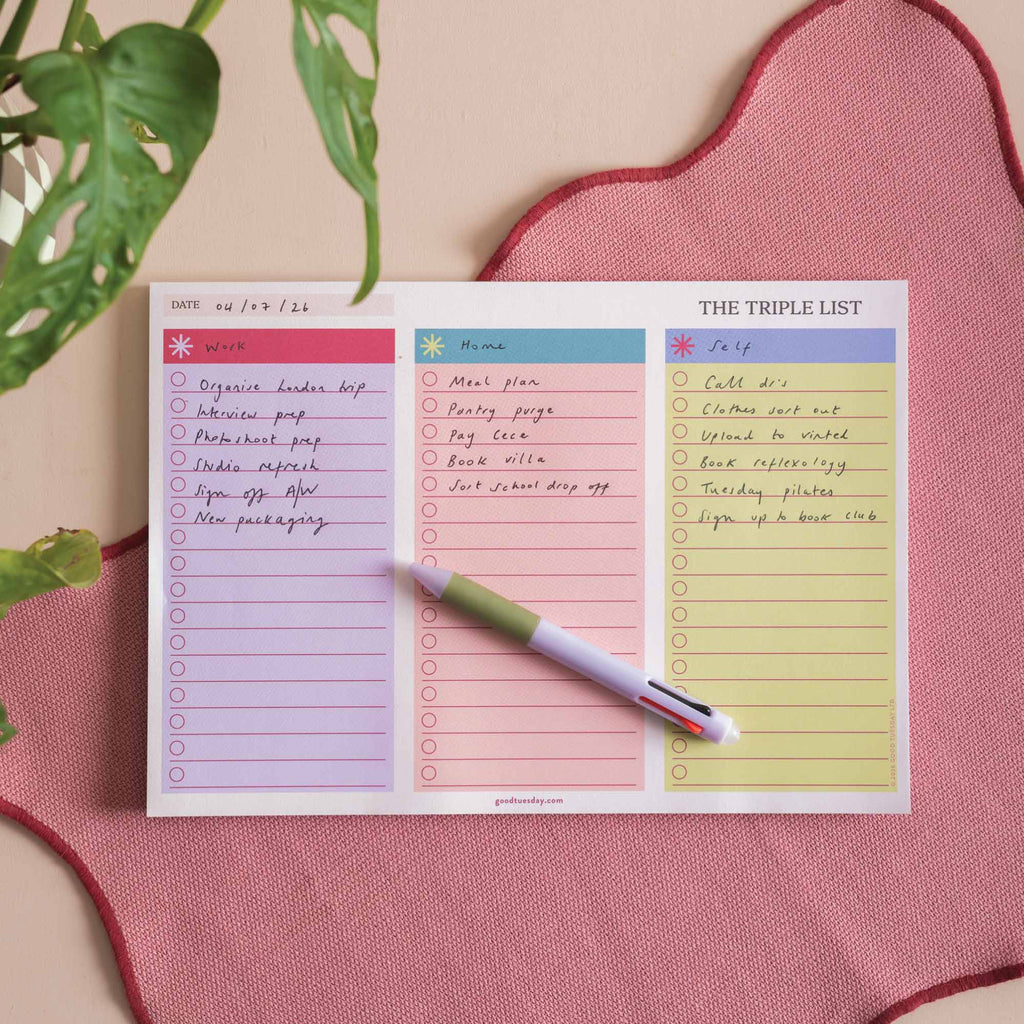 DATE 04/07/26
THE TRIPLE LIST
Work
Organise London trip
Interview prep
Photoshoot prep
Studio refresh
Sign off A/W
New packaging
Home
Meal plan
Pantry purge
Pay Cece
Book villa
Sort school drop off
Self
Call dr's
Clothes sort out
Upload to vinted
Book reflexology
Tuesday pilates
Sign up to book club
goodtuesday.com
GOOD TUESDAY LTD